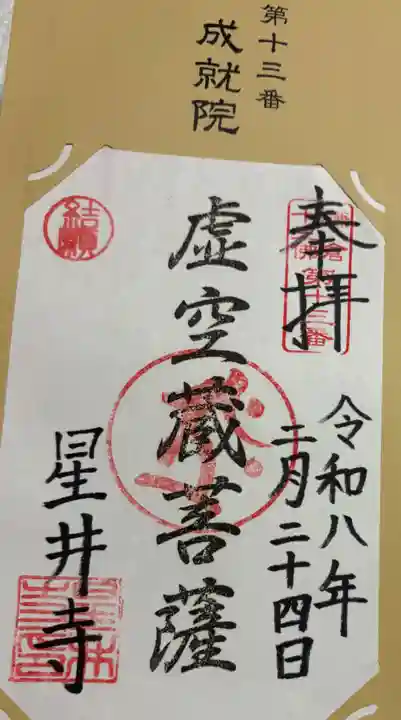 第十三番
成就院
奉拝
令和八年
二月二十四日
虚空蔵菩薩
星井寺
結願